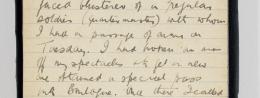 faced blusterer of a regular
soldier (quartermaster) with whom
I had a passage of arms on
Tuesday. I had broken an arm
of my spectacles & to get a new
one obtained a special pass
into Boulogne. Once there I called